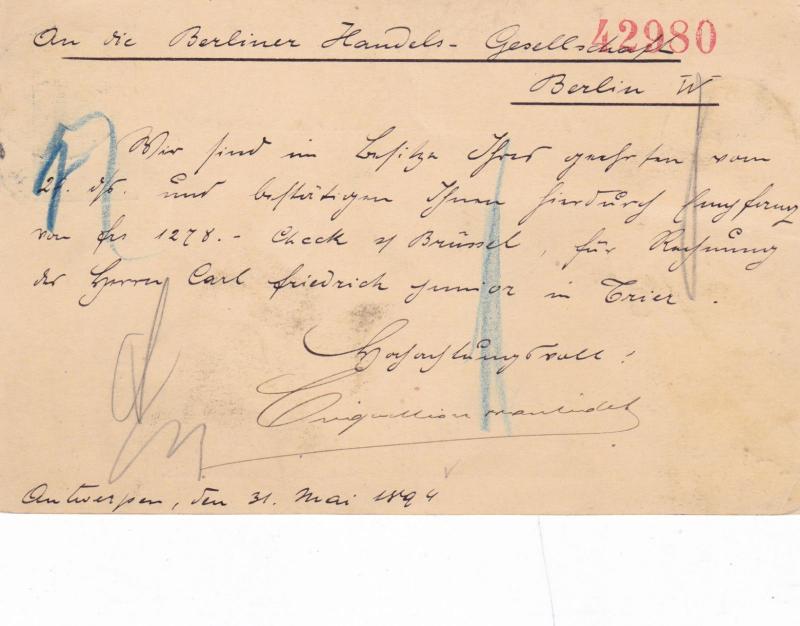 An die Berliner Handels-Gesellschaft 42980
Berlin W
Wir sind im Besitze Ihres geehrten vom
26. ds. und bestätigen Ihnen hierdurch Empfang
von frs 1278.- Check s/ Brüssel, für Rechnung
der Herren Carl Friedrich junior in Trier.
Hochachtungsvoll!
Antwerpen, den 31. Mai 1894